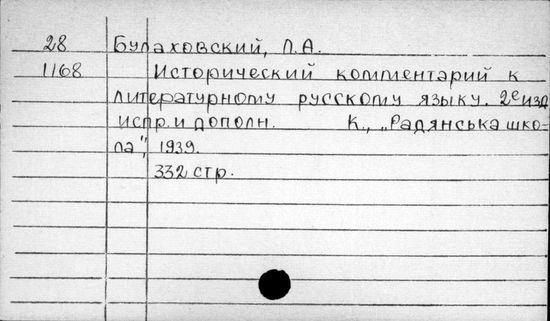 28 Булаховский, Л.А.
1168 Исторический комментарий к
литературному русскому языку. 2е изд
испр. и дополн. К., „Радянська шко-
ла", 1939.
332 стр.